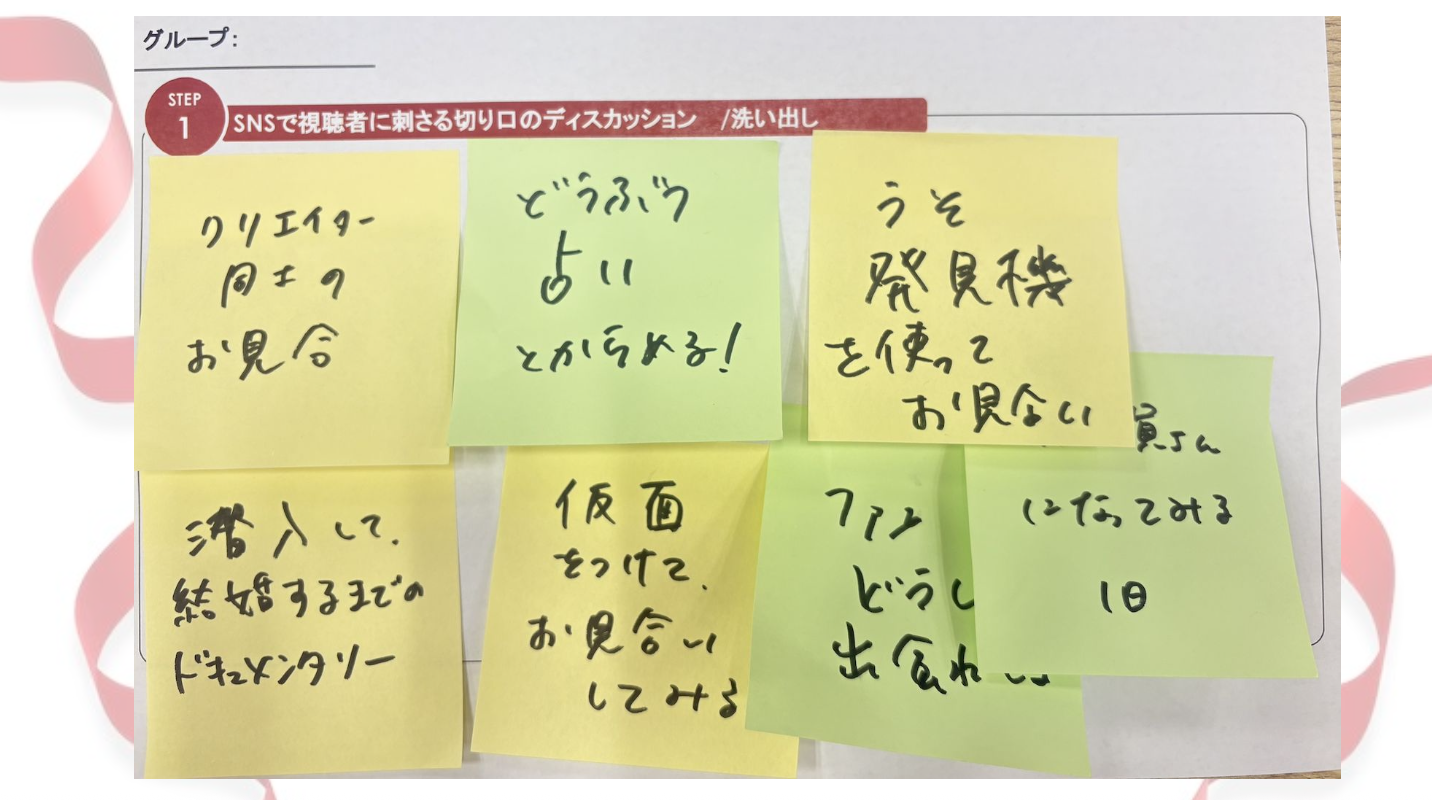 グループ:
STEP
1
SNSで視聴者に刺さる切り口のディスカッション /洗い出し
クリエイター
同士の
お見合
どうぶつ
占い
とからめる!
うそ
発見機
を使って
お見合い
員さん
になってみる
1日
潜入して、
結婚するまでの
ドキュメンタリー
仮面
をつけて、
お見合い
してみる
ファン
どうし
出会れ